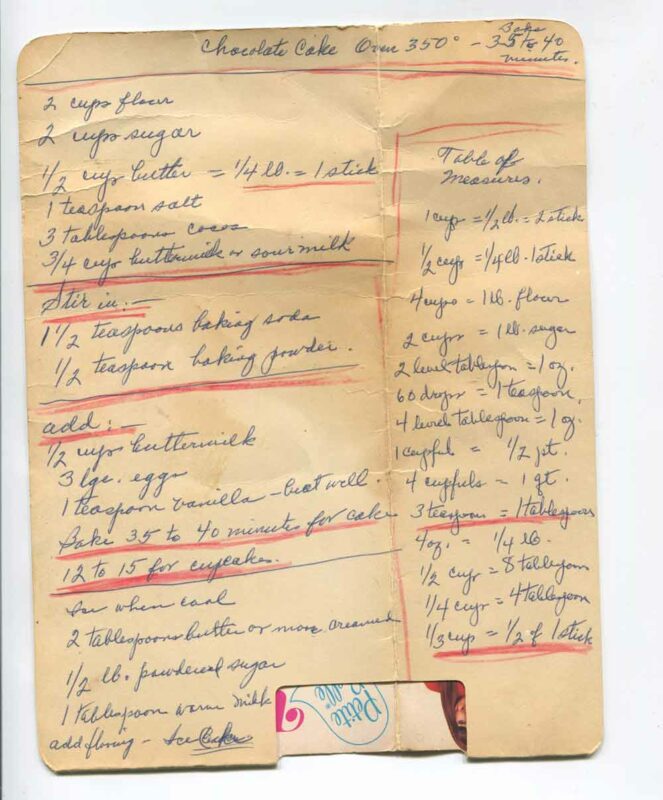 Chocolate Cake Oven 350° - Bake 35 to 40 minutes.
2 cups flour
2 cups sugar
1/2 cup butter = 1/4 lb. = 1 stick
1 teaspoon salt
3 tablespoons cocoa
3/4 cup buttermilk or sour milk
Stir in:-
1 1/2 teaspoons baking soda
1/2 teaspoon baking powder.
add:-
1/2 cups buttermilk
3 lge. eggs
1 teaspoon vanilla - beat well.
Bake 35 to 40 minutes for cake
12 to 15 for cupcakes.
Ice when cool
2 tablespoons butter or more creamed
1/2 lb. powdered sugar
1 tablespoon warm milk
add flavoring - Ice Cake
Table of
Measures.
1 cup = 1/2 lb. = 2 stick
1/2 cup = 1/4 lb. 1 stick
4 cups = 1 lb. flour
2 cups = 1 lb. sugar
2 level tablespoon = 1 oz.
60 drops = 1 teaspoon.
4 level tablespoon = 1 oz.
1 cupful = 1/2 pt.
4 cupfuls = 1 qt.
3 teaspoon = 1 tablespoon
4 oz. = 1/4 lb.
1/2 cup = 8 tablespoon
1/4 cup = 4 tablespoon
1/3 cup = 1/2 of 1 stick
Petite
Belle